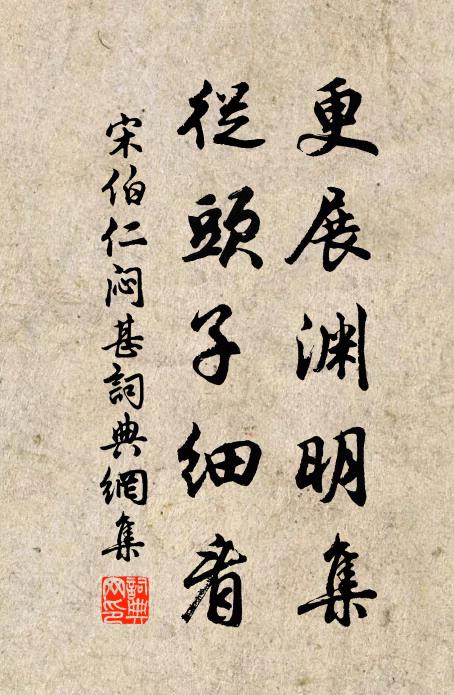 更展渊明集
從頭子细看
宋伯仁闷甚詞典網集
詞典
网印